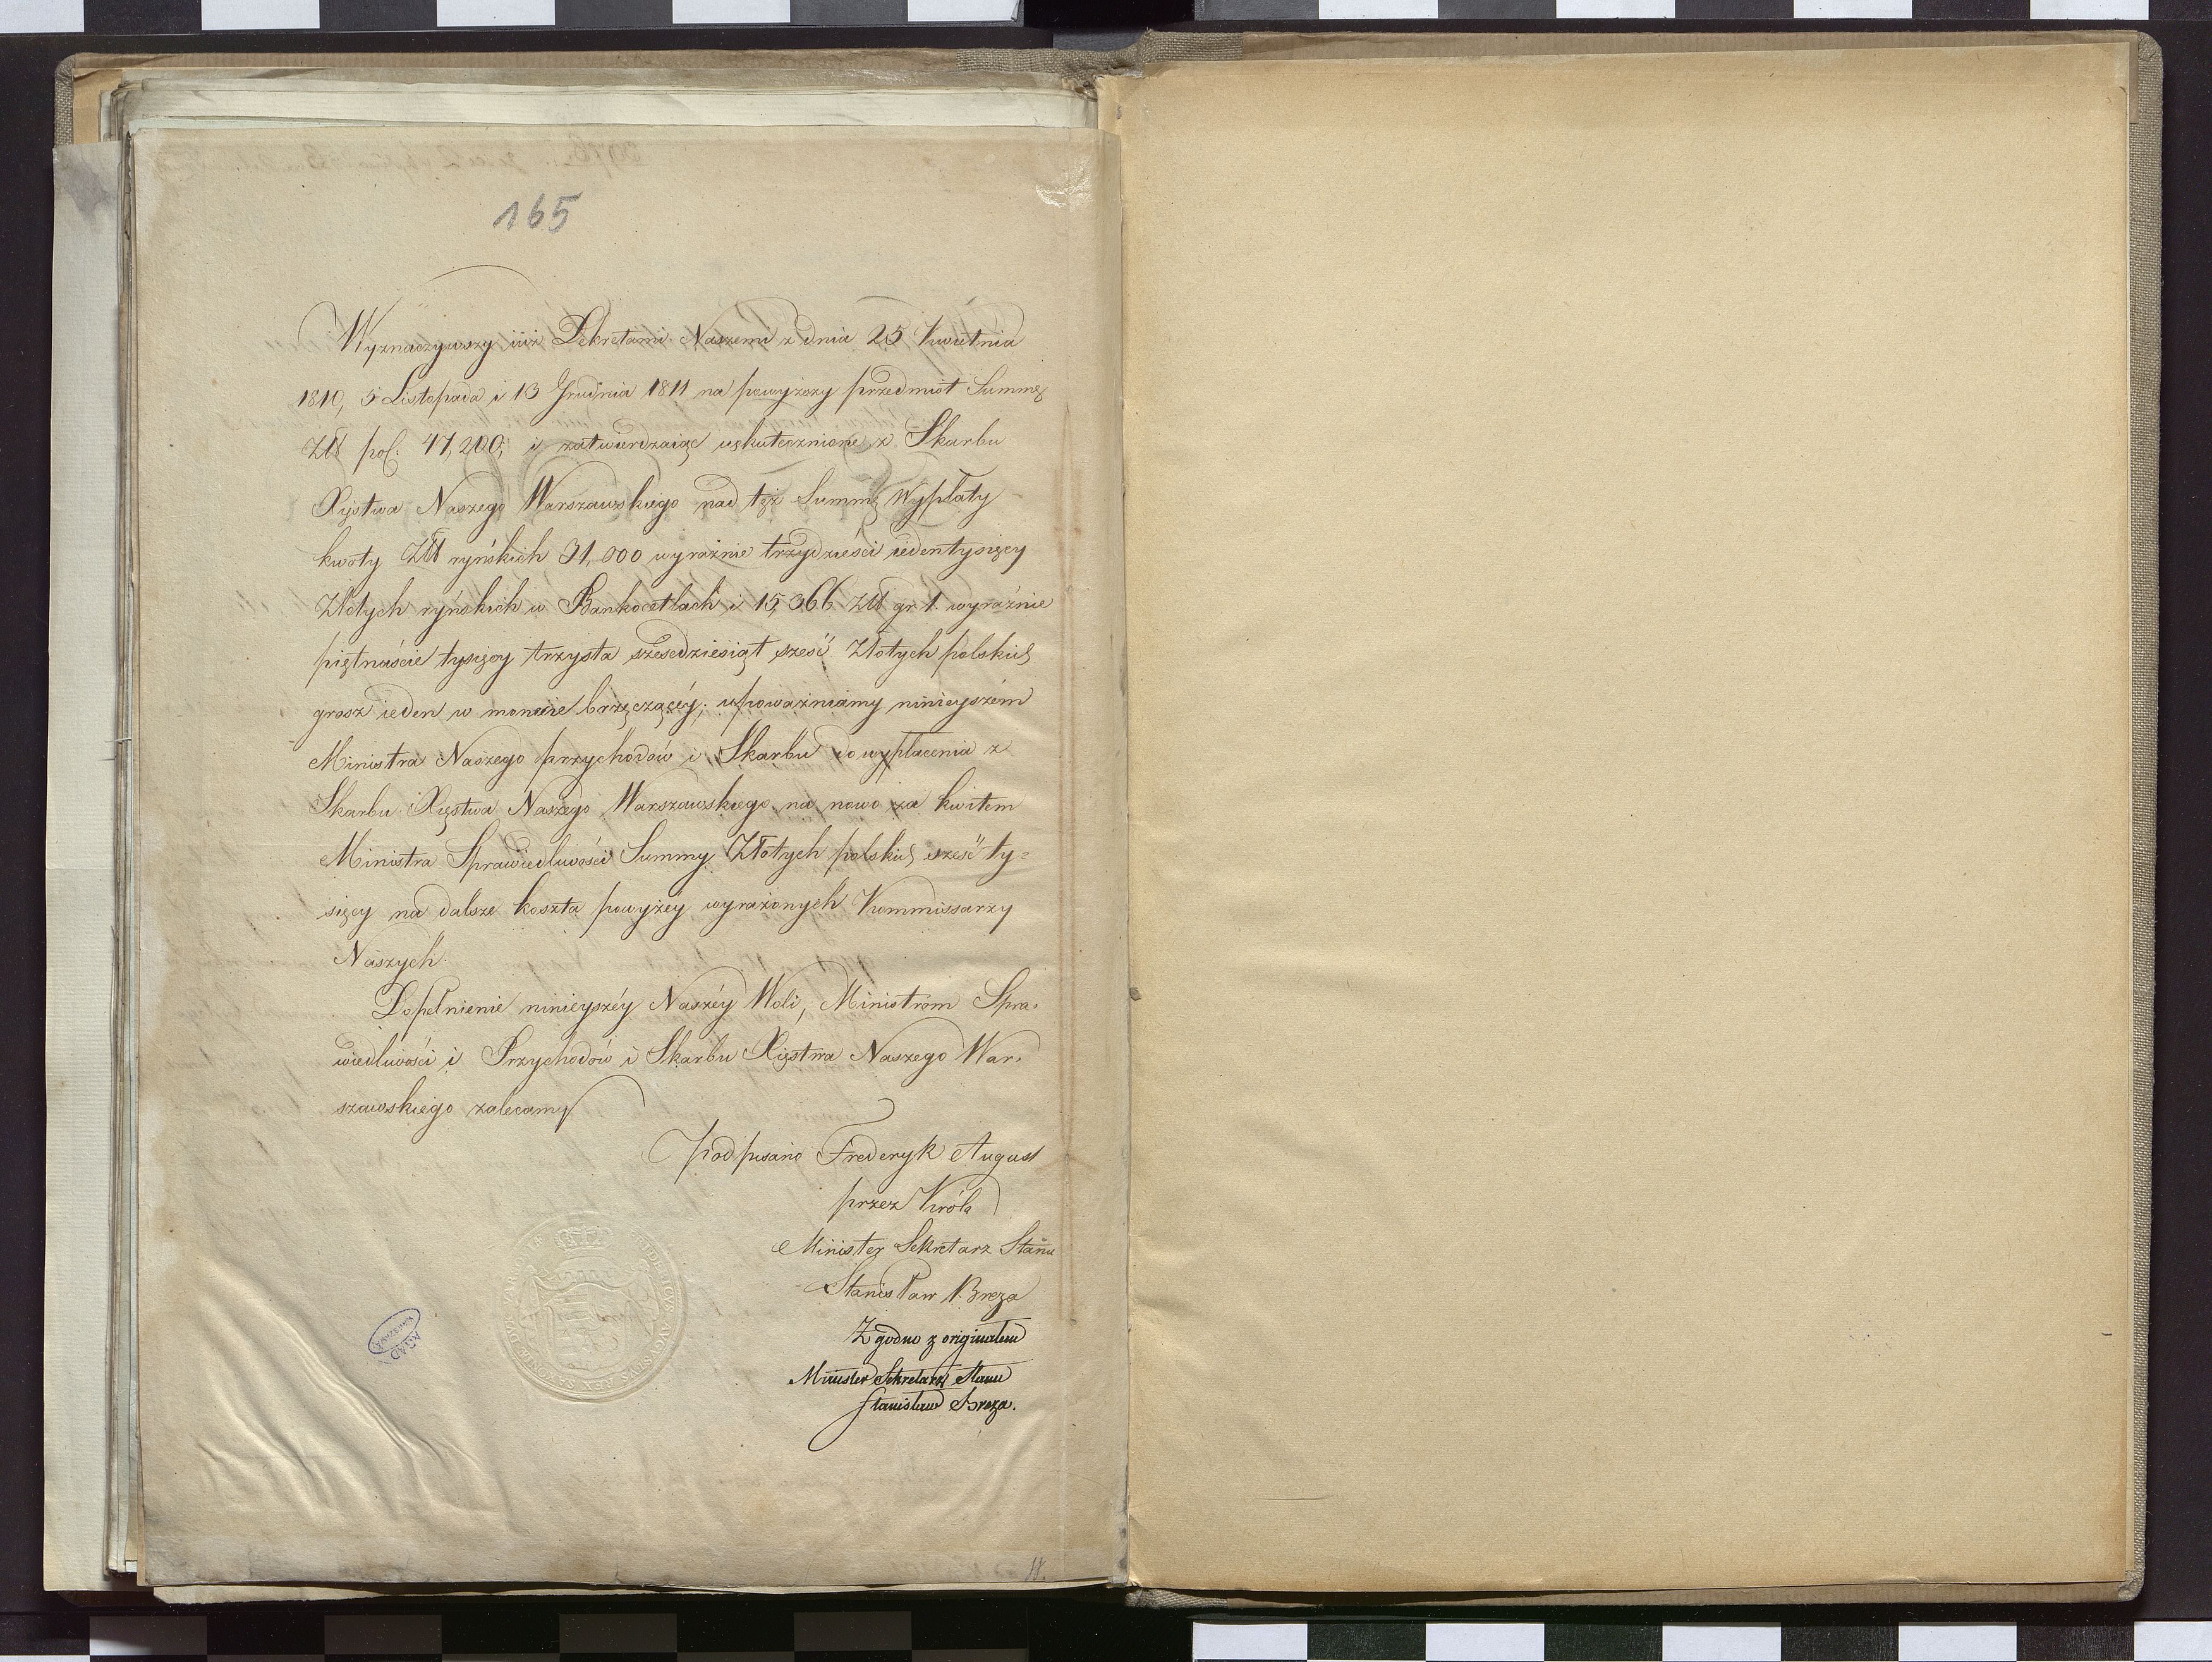 165
Wyznaczywszy iuż Dekretami Naszemi z dnia 25 Kwietnia
1810, 5 Listopada i 13 Grudnia 1811 na powyższy przedmiot Summę
Złł pol. 47,200, i zatwierdzaiąc uskutecznione z Skarbu
Xięstwa Naszego Warszawskiego nad tęż Summę Wypłaty
kwoty Złł ryńskich 31,000 wyraźnie trzydzieści iedentysięcy
Złotych ryńskich w Bankocetlach i 15,366 Złł gr 1. wyraźnie
piętnaście tysięcy trzysta sześcdziesiąt sześć Złotych polskich
grosz ieden w monecie brzęczącéy; upoważniamy ninieyszém
Ministra Naszego przychodów i Skarbu do wypłacenia z
Skarbu Xięstwa Naszego Warszawskiego na nowo za kwitem
Ministra Sprawiedliwości Summy Złotych polskich sześć ty=
sięcy na dalsze koszta powyżey wyrażonych Kommissarzy
Naszych.
Dopełnienie ninieyszéy Naszéy Woli, Ministrom Spra=
wiedliwości i Przychodów i Skarbu Xięstwa Naszego War=
szawskiego zalecamy
Podpisano Frederyk August
przez Króla
Minister Sekretarz Stanu
Stanisław Breza
Zgodno z originałem
Minister Sekretarz Stanu
Stanisław Breza.
AGAD
WARSZAWA